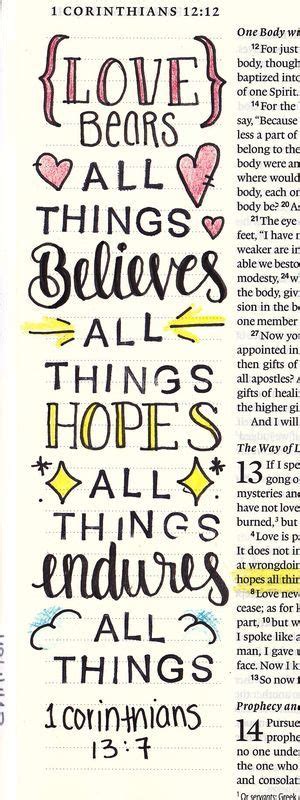 1 CORINTHIANS 12:12
{LOVE}
BEARS
ALL
THINGS
Believes
ALL
THINGS
HOPES
ALL
THINGS
endures
ALL
THINGS
1 corinthians
13:7
One Body wi
12 For just
body, though
baptized into
of one Spirit.
14 For the
say, "Because
less a part of
belong to the
body were an
where would
body, each on
body be? 20 As
21 The eye
feet, "I have n
weaker are in
able we besto
modesty, 24 w
the body, givi
sion in the bo
one member
27 Now you
appointed in
then gifts of
all apostles? A
gifts of heali
the higher gi
And I will
The Way of L
13 If I spe
gong o
mysteries and
have not love
burned,3 but
4 Love is pa
It does not in
at wrongdoin
hopes all thin
8 Love neve
cease; as for k
part, 10 but w
I spoke like a
man, I gave u
face. Now I k
13 So now f
Prophecy and
14 Pursue
prophe
no one under
the one who
and consolat
1 Or servants; Greek